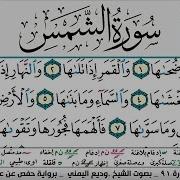 سُورَةُ الشَّمْسِ
ضُحَىٰهَا ١ وَٱلْقَمَرِ إِذَا تَلَىٰهَا ٢ وَٱلنَّهَارِ إِذَا
٤ وَٱلسَّمَآءِ وَمَا بَنَىٰهَا ٥ وَٱلْأَرْضِ
وَمَا سَوَّىٰهَا ٧ فَأَلْهَمَهَا فُجُورَهَا وَتَقْوَىٰهَا
٩١ - بصوت الشيخ وديع اليمني - برواية حفص عن